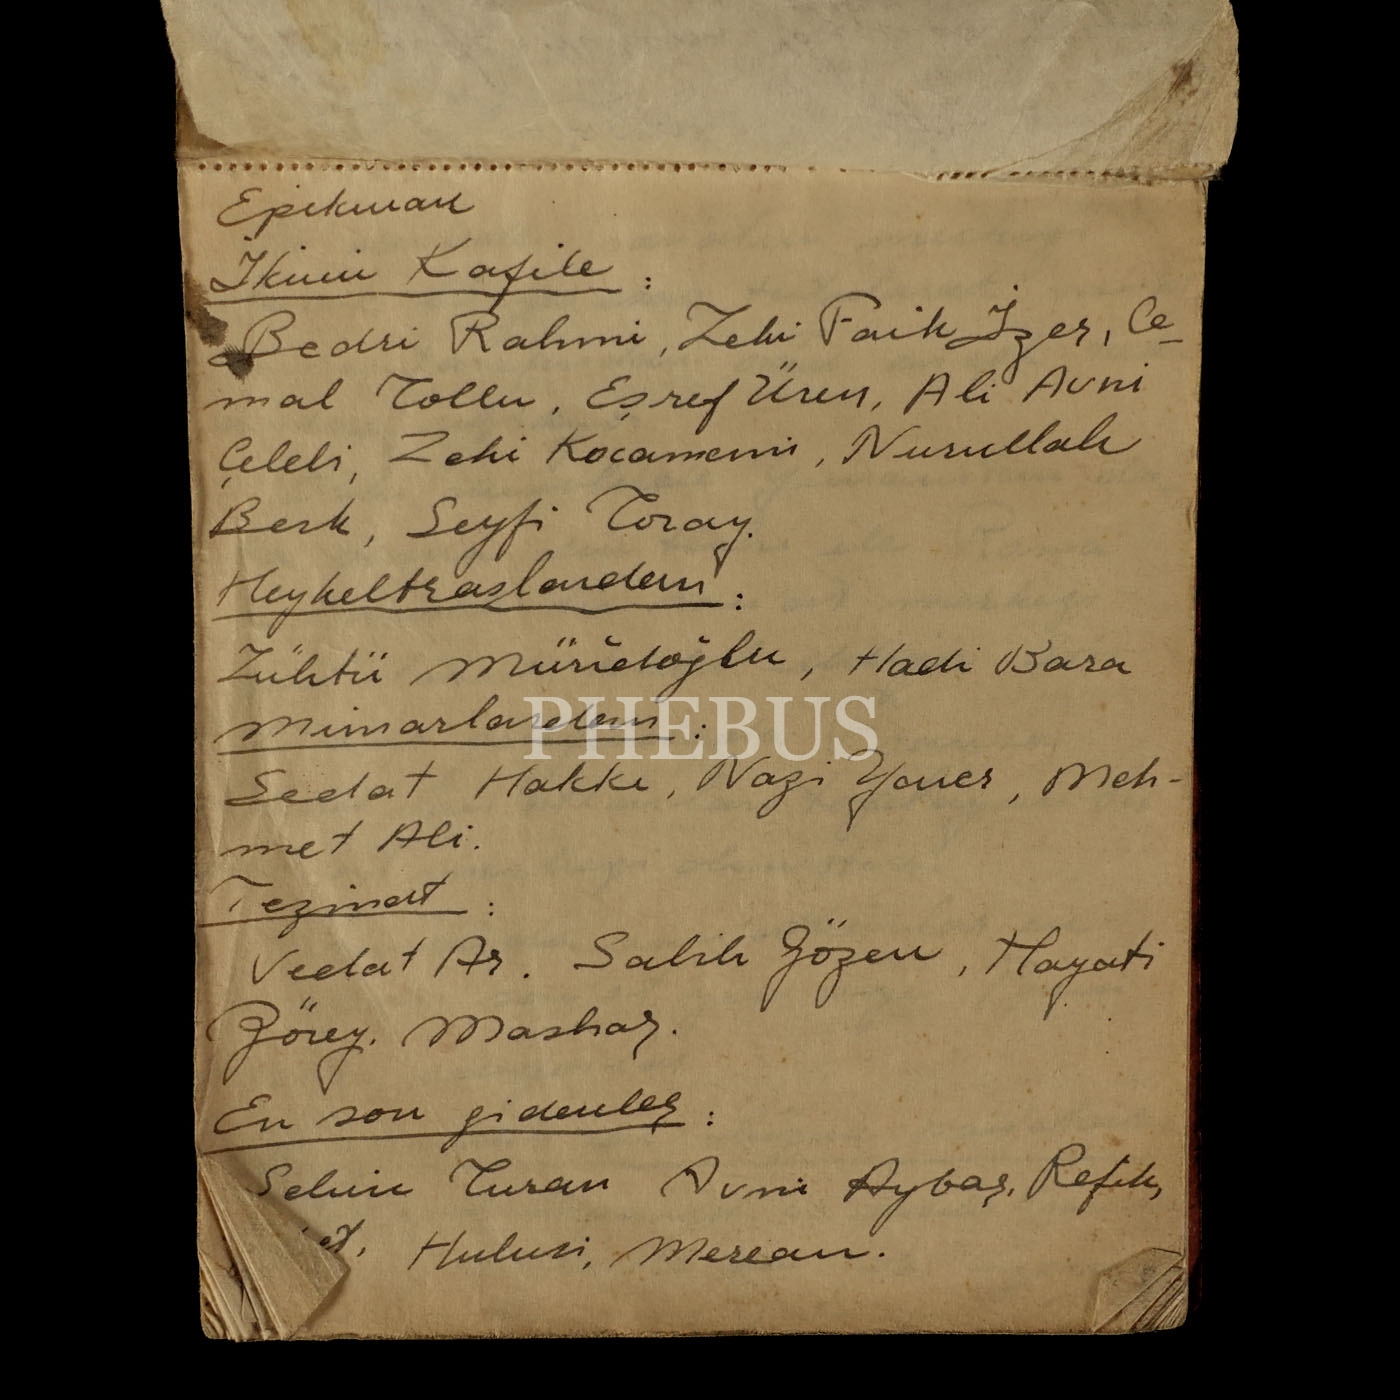 Epikman
İkinci Kafile :
Bedri Rahmi, Zeki Faik İzer, Ce-
mal Tollu, Eşref Üren, Ali Avni
Çelebi, Zeki Kocamemi, Nurullah
Berk, Seyfi Toray.
Heykeltraşlardan :
Zühtü Müridoğlu, Hadi Bara
PHEBUS
Mimarlardan :
Sedat Hakkı, Nazi Yaver, Meh-
met Ali.
Tezinat :
Vedat Ar. Salih Gözen, Hayati
Görey. Mashar.
En son gidenler :
Selim Turan Avni Aybaş, Refik,
Hulusi, Mercan.